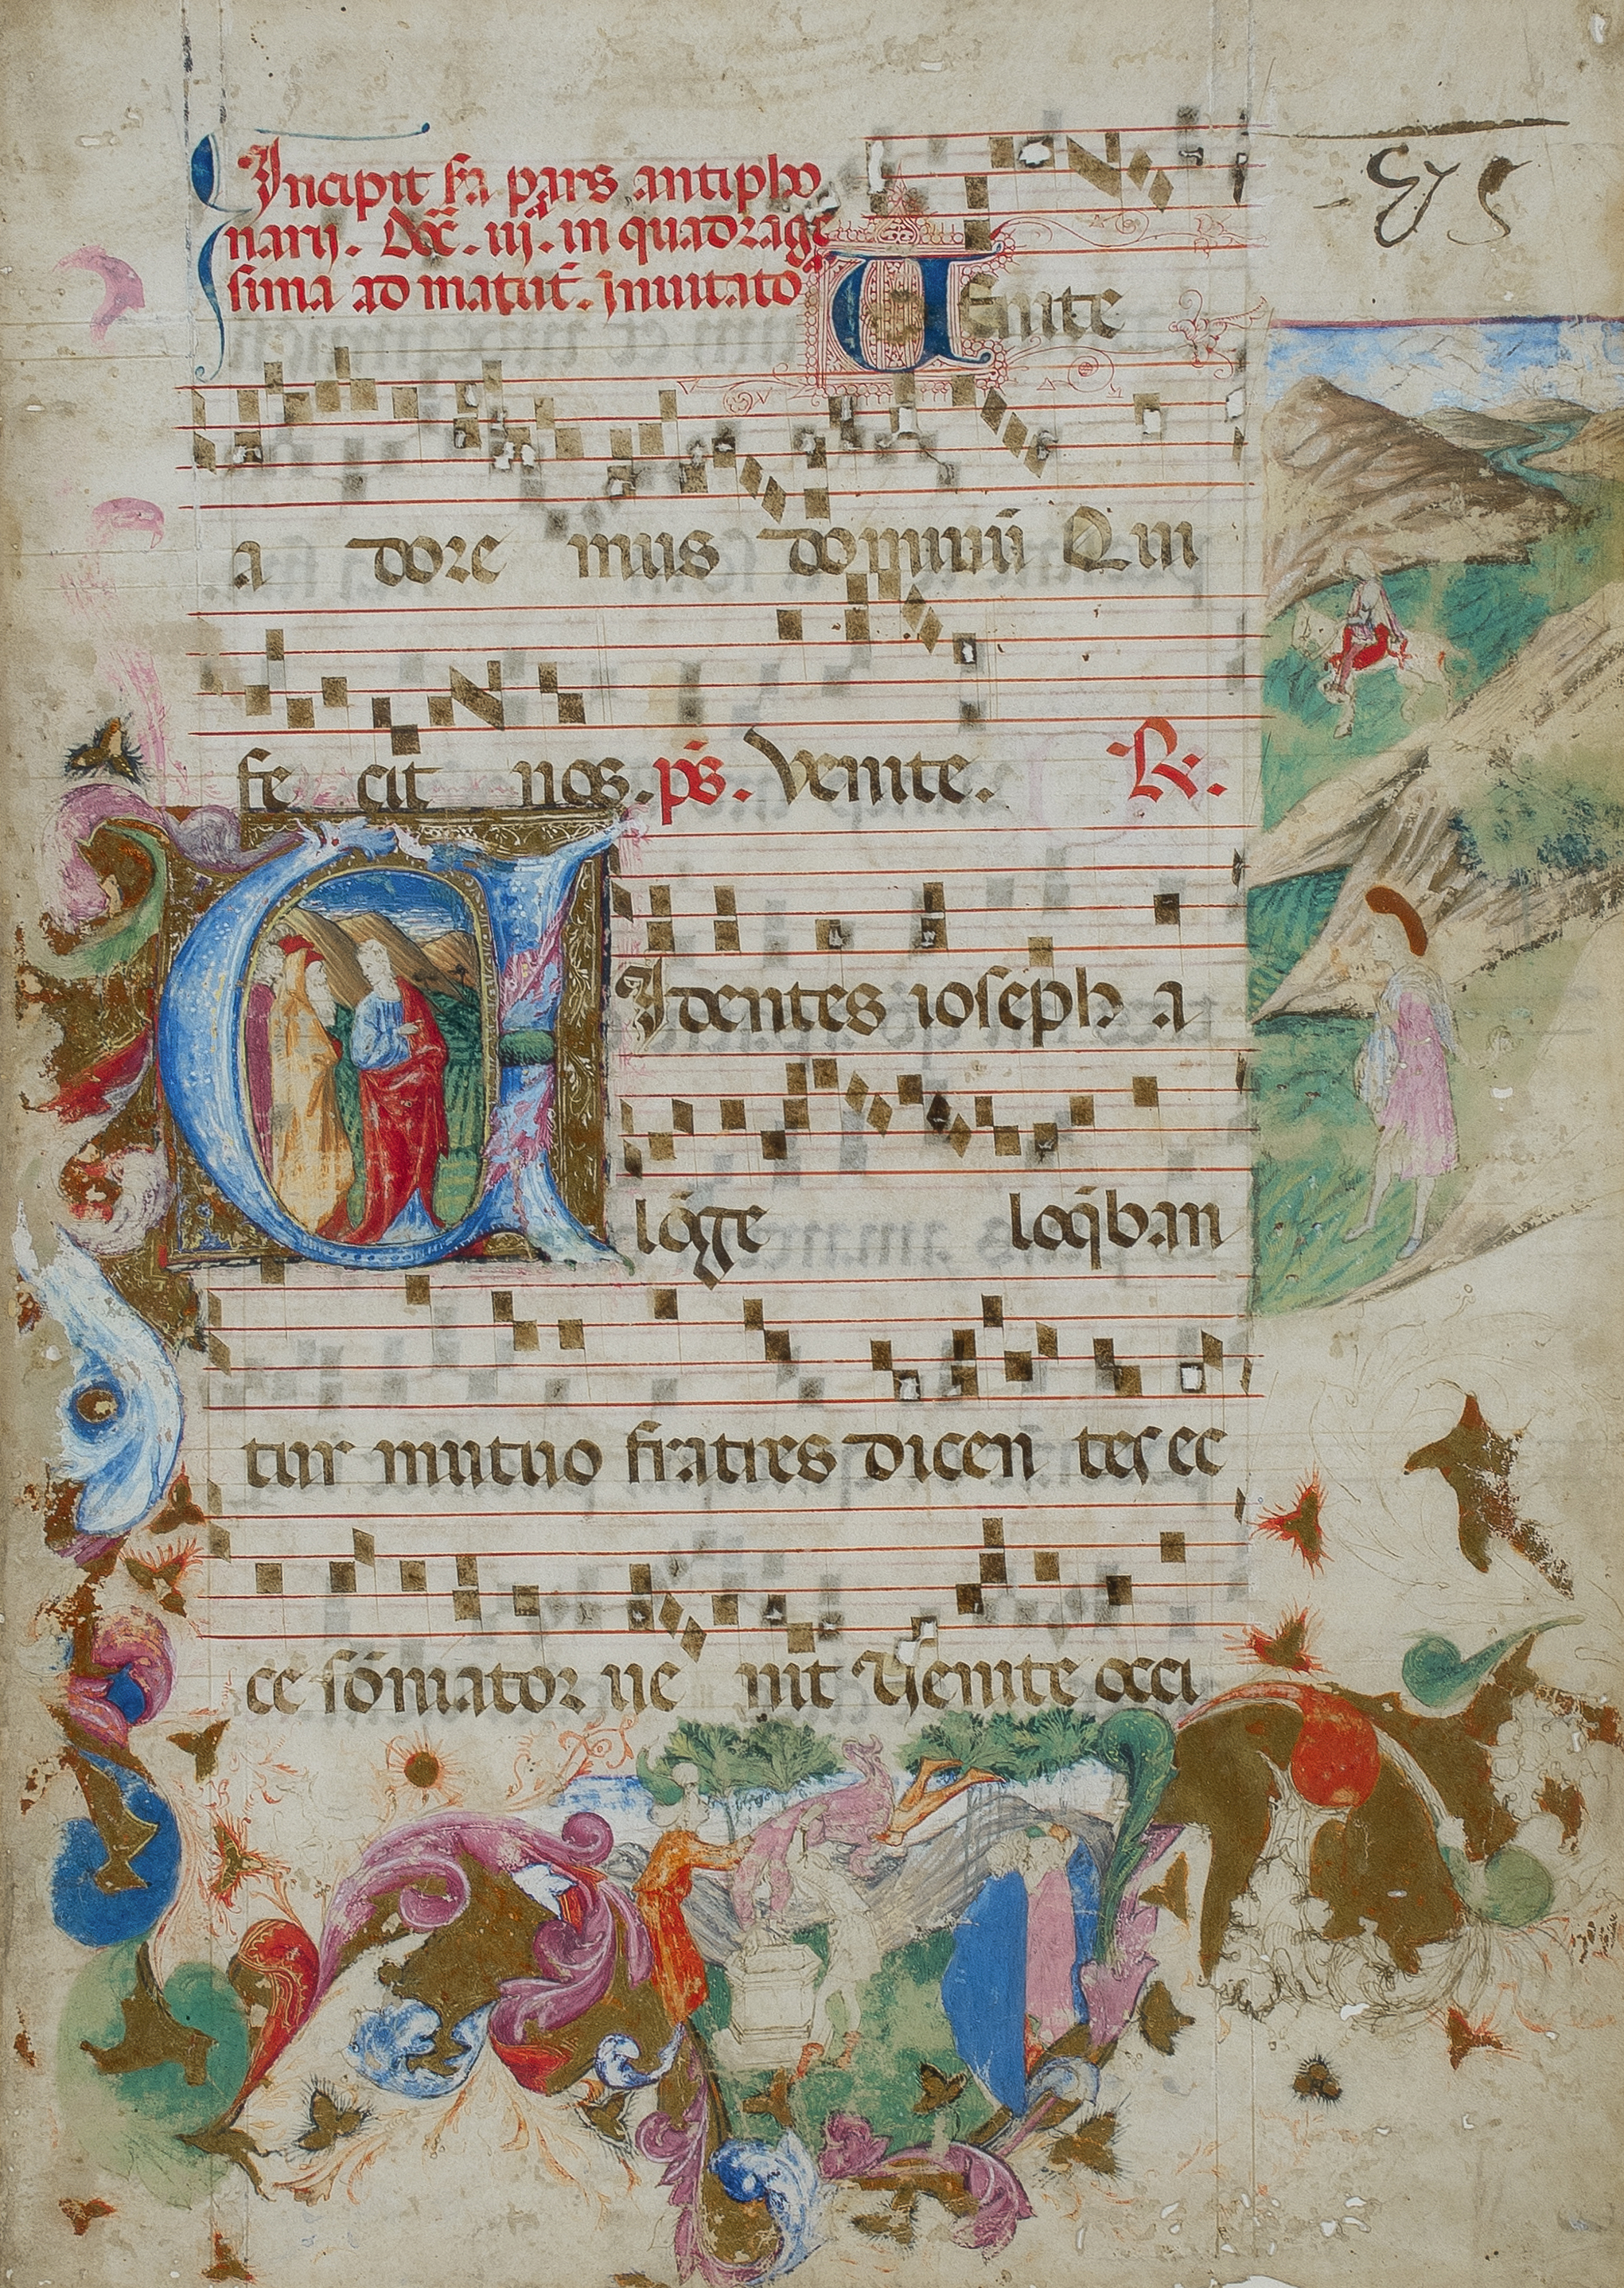 Incipit s̄a pars antipho
narij. Dō̄c. iij. in quadrage
sima ad matut̄. Inuitato
VEnite
a dore mus dominū Qui
fe cit nos. p̄s. Venite. R.
VIdentes ioseph a
lōge loq̄ban
tur mutuo fratres dicen tes ec
ce sōniator ue nit Venite occi